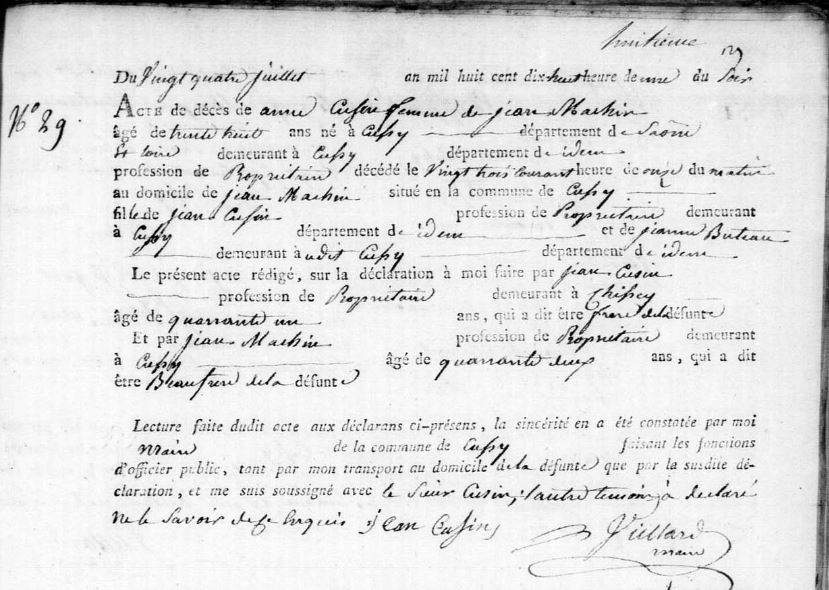 huitieme
Du Vingt quatre juillet an mil huit cent dix huit heure de une du Soir
N° 29.
ACTE de décès de anne Cusin femme de jean Machin
âgé de trente huit ans né à Cussy département de Saône
et Loire demeurant à Cussy département de idem
profession de Propriétaire décédé le Vingt trois courant heure de onze du matin
au domicile de jean Machin situé en la commune de Cussy
fille de jean Cusin profession de Propriétaire demeurant
à Cussy département de idem et de jeanne Buteau
demeurant à udit Cussy département de idem
Le présent acte rédigé, sur la déclaration à moi faite par jean Cusin
profession de Propriétaire demeurant à Chissey
âgé de quarrante un ans, qui a dit être frere dela défunte
Et par jean Machin profession de Propriétaire demeurant
à Cussy âgé de quarrante deux ans, qui a dit
être Beaufrere dela défunte
Lecture faite dudit acte aux déclarans ci-présens, la sincérité en a été constatée par moi
maire de la commune de Cussy faisant les fonctions
d'officier public, tant par mon transport au domicile dela défunte que par la susdite dé-
claration, et me suis soussigné avec le sieur Cusin, l'autre temoin a declaré
ne le Savoir de ce Enquis jean Cusin
Villard
maire